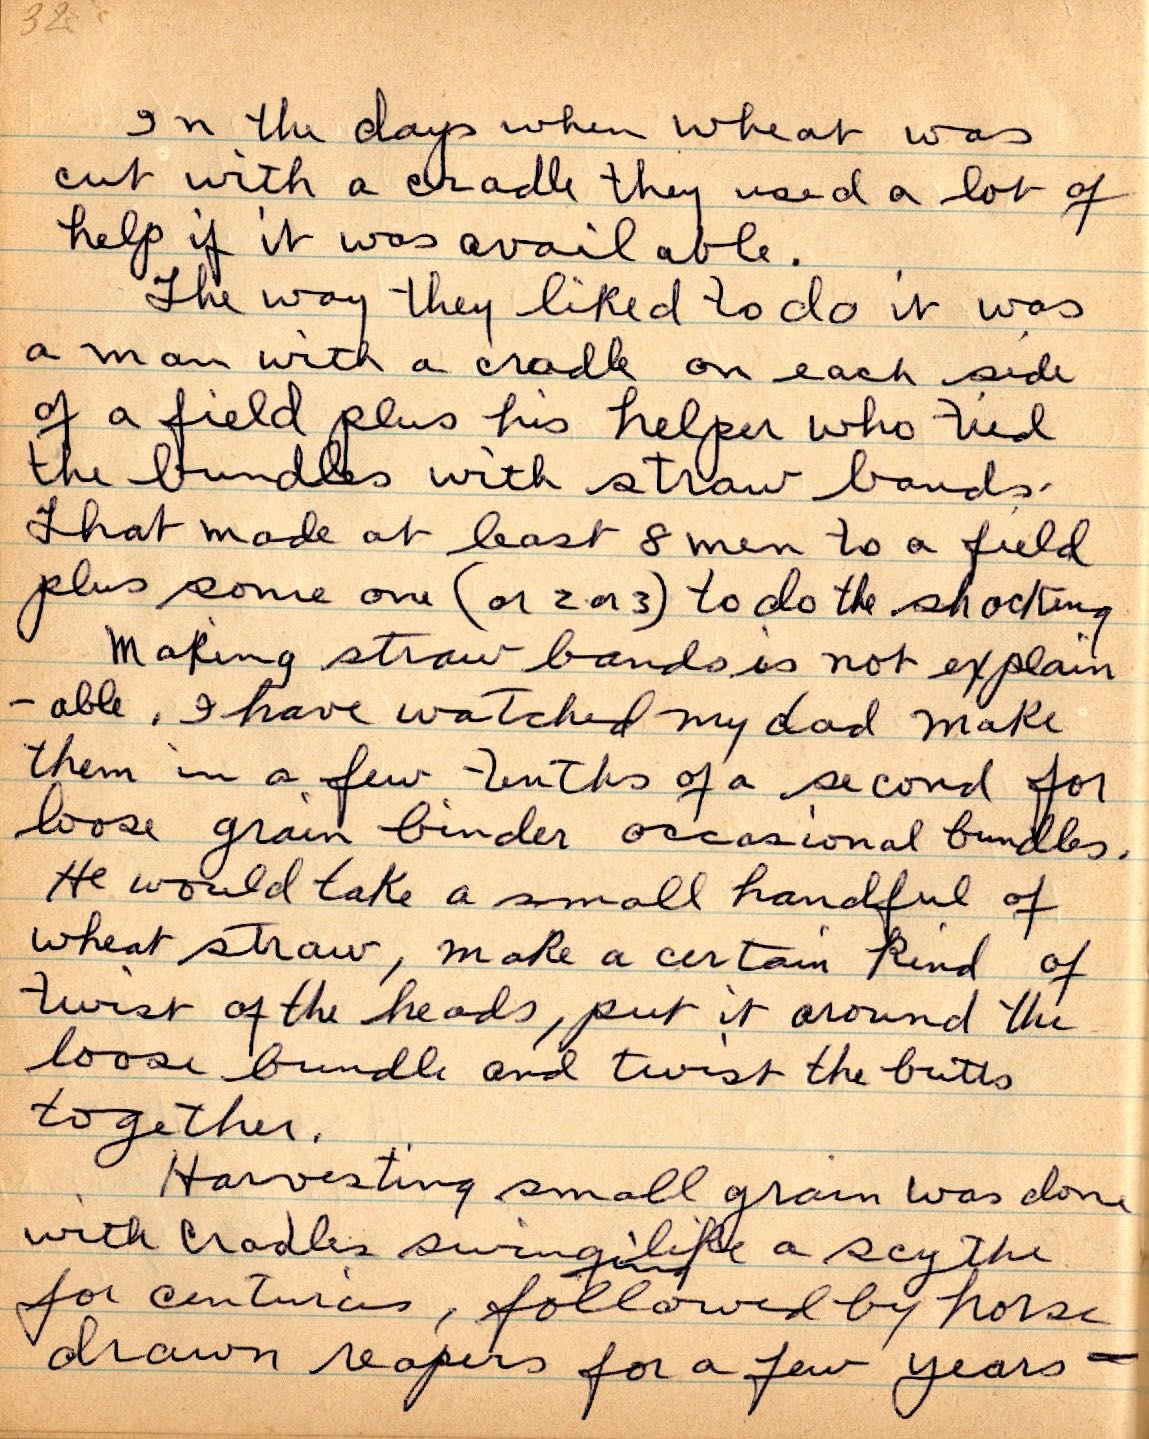 32
In the days when wheat was
cut with a cradle they used a lot of
help if it was available.
The way they liked to do it was
a man with a cradle on each side
of a field plus his helper who tied
the bundles with straw bands.
That made at least 8 men to a field
plus some one (or 2 or 3) to do the shocking
Making straw bands is not explain
-able. I have watched my dad make
them in a few tenths of a second for
loose grain binder occasional bundles.
He would take a small handful of
wheat straw, make a certain kind of
twist of the heads, put it around the
loose bundle and twist the butts
together.
Harvesting small grain was done
with cradles swinging like a scythe
for centuries, followed by horse
drawn reapers for a few years -